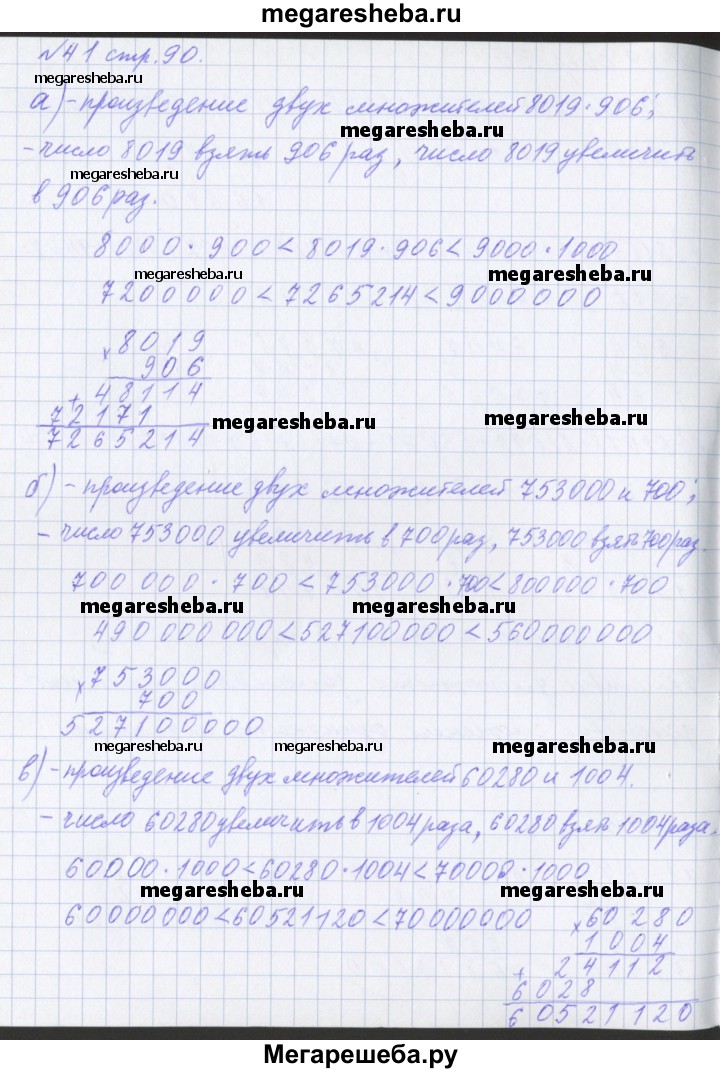 megaresheba.ru
№41 стр.90.
megaresheba.ru
а) - произведение двух множителей 8019·906;
megaresheba.ru
- число 8019 взять 906 раз, число 8019 увеличить
megaresheba.ru
в 906 раз.
8000·900<8019·906<9000·1000
megaresheba.ru megaresheba.ru
7200000<7265214<9000000
× 8019
906
+ 48114
72171
megaresheba.ru megaresheba.ru
7265214
б) - произведение двух множителей 753000 и 700;
- число 753000 увеличить в 700 раз, 753000 взять 700 раз.
700 000·700<753000·700<800000·700
megaresheba.ru megaresheba.ru
490 000 000<527100000<560000000
× 753000
700
527100000
megaresheba.ru megaresheba.ru megaresheba.ru
в) - произведение двух множителей 60280 и 1004.
- число 60280 увеличить в 1004 раза, 60280 взять 1004 раза.
60000·1000<60280·1004<70000·1000
megaresheba.ru megaresheba.ru
60000000<60521120<70000000
× 60280
1004
+ 24112
6028
60521120
Мегарешеба.ру